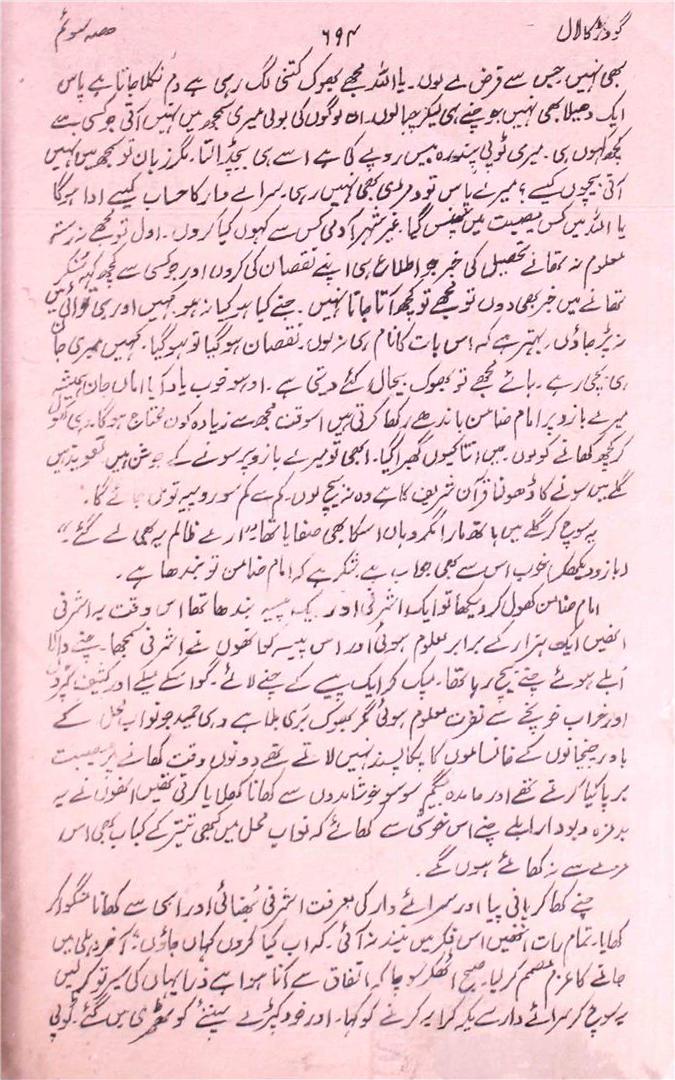 گودڑ کا لال ۶۹۴ حصہ سوئم
بھی نہیں جس سے قرض لے لوں۔ یا اللہ مجھے بھوک کتنی لگ رہی ہے دم نکلا جاتا ہے پاس
ایک دھیلا بھی نہیں جو چنے ہی لیکر چبا لوں۔ ان لوگوں کی بولی میری سمجھ میں نہیں آتی جو کسی سے
کچھ کہوں ہی۔ میری ٹوپی پندرہ بیس روپے کی ہے اسے ہی بیچ ڈالتا۔ مگر زبان تو سمجھ میں نہیں
آتی بیچوں کسے؟ میرے پاس تو دمڑی بھی نہیں رہی۔ سرائے دار کا حساب کیسے ادا ہوگا
یا اللہ میں کس مصیبت میں پھنس گیا۔ غیر شہر آدمی کس سے کہوں کیا کروں۔ اول تو مجھے نہ رستہ
معلوم نہ تھانے تحصیل کی خبر جو اطلاع ہی اپنے نقصان کی کروں اور جو کسی سے کچھ کہہ سنکر
تھانے میں خبر بھی دوں تو مجھے تو کچھ آتا جاتا نہیں۔ جنے کیا ہو کیا نہ ہو۔ نہیں اور ہی
نہ پڑ جاؤں۔ بہتر ہے کہ اس بات کا نام ہی نہ لوں۔ نقصان ہو گیا تو ہو گیا۔ کہیں میری جان
ہی بچی رہے۔ ہائے مجھے تو بھوک بیحال کئے دیتی ہے۔ اوہو خوب یاد آیا اماں جان ہمیشہ
میرے بازو پر امام ضامن باندھے رکھا کرتی ہیں اسوقت مجھ سے زیادہ کون محتاج ہوگا۔ وہی کھول
کر کچھ کھانے کو لوں۔ میں اتنا کیوں گھبرا گیا۔ ابھی تو میرے بازو پر سونے کے جوشن ہیں تعویذ ہیں
گلے میں سونے کا ڈھولنا قرآن شریف کا ہے وہ نہ بیچ لوں۔ کم سے کم سو روپیہ تو مل جائے گا۔
یہ سوچ کر گلے میں ہاتھ مارا مگر وہاں اسکا بھی صفایا تھا "ارے ظالم یہ بھی لے گئے"
(بازو دیکھکر) خوب اس سے بھی جواب ہے شکر ہے کہ امام ضامن تو بندھا ہے۔
امام ضامن کھول کر دیکھا تو ایک اشرفی اور ایک پیسہ بندھا تھا اس وقت یہ اشرفی
انھیں ایک ہزار کے برابر معلوم ہوئی اور اس پیسہ کو انھوں نے اشرفی سمجھا۔ چنے والا
اُبلے ہوئے چنے بیچ رہا تھا۔ لپک کر ایک پیسے کے چنے لائے۔ گو اسکے میلے اور کثیف کپڑوں
اور خراب خونچے سے نفرت معلوم ہوئی مگر بھوک بری بلا ہے وہی حمید جو نواب محل کے
باورچیخانوں کے خانساموں کا پکا پسند نہیں لاتے تھے دونوں وقت کھانے پر مصیبت
برپا کیا کرتے تھے اور ماندہ بیگم سو سو خوشامدوں سے کھانا کھلایا کرتی تھیں انھوں نے یہ
بدمزہ و بودار اُبلے چنے اس خوشی سے کھائے کہ نواب محل میں کبھی تیتر کے کباب بھی اس
مزے سے نہ کھائے ہوں گے۔
چنے کھا کر پانی پیا اور سرائے دار کی معرفت اشرفی بُھنائی اور اسی سے کھانا منگوا کر
کھایا۔ تمام رات انھیں اس فکر میں نیند نہ آئی۔ کہ اب کیا کروں کہاں جاؤں؟ آخر دہلی میں
جانے کا عزم مصمم کر لیا۔ صبح اُٹھکر سوچا کہ اتفاق سے آنا ہوا ہے ذرا یہاں کی سیر تو کر لیں
یہ سوچ کر سرائے دار سے یکہ کرایہ کرنے کو کہا۔ اور خود کپڑے پہننے کوٹھری میں گئے۔ ٹوپی